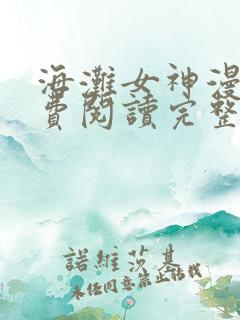 海灘女神漫
費閱讀完整
諾維莎基
未經同意禁止轉載